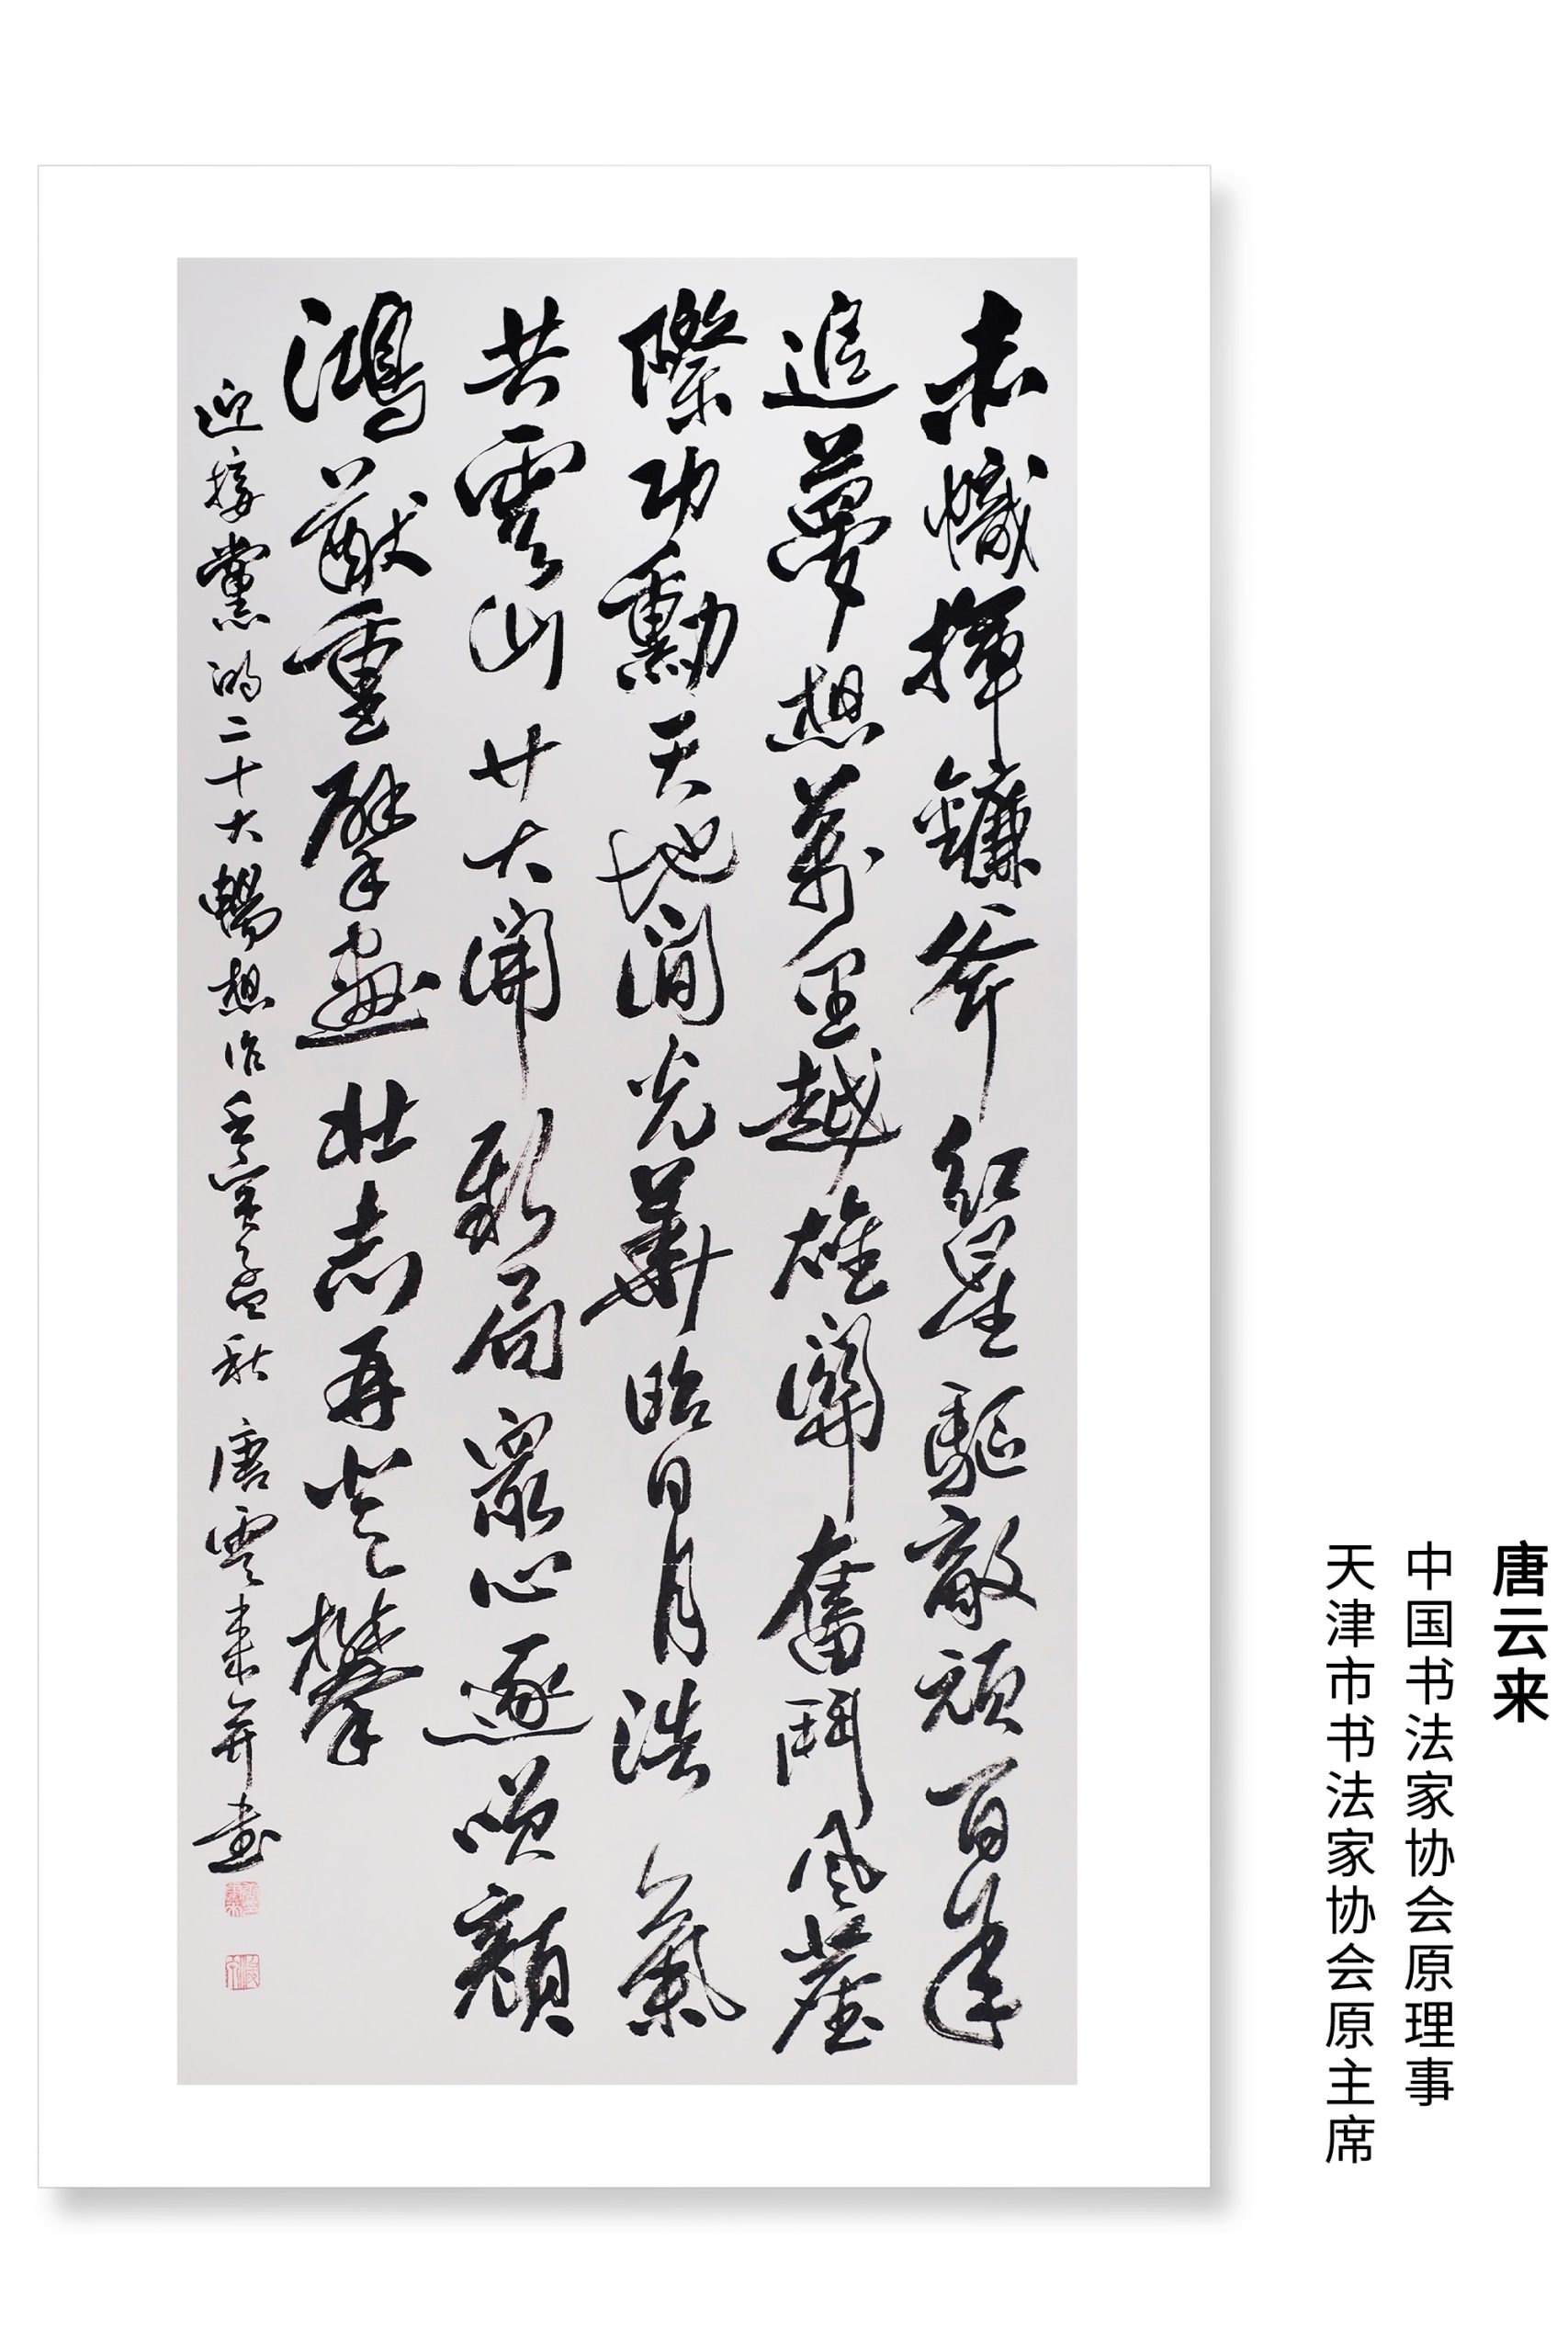 赤幟揮鐮斧紅星驅敵頑百年
追夢想萬里越雄關奮鬥風塵
際功勳天地間光華昭日月浩氣
共雲山廿大開新局眾心逐笑顏
鴻猷重擘畫壯志再登攀
迎接黨的二十大暢想作壬寅孟秋唐雲來並書
唐云来
中国书法家协会原理事
天津市书法家协会原主席